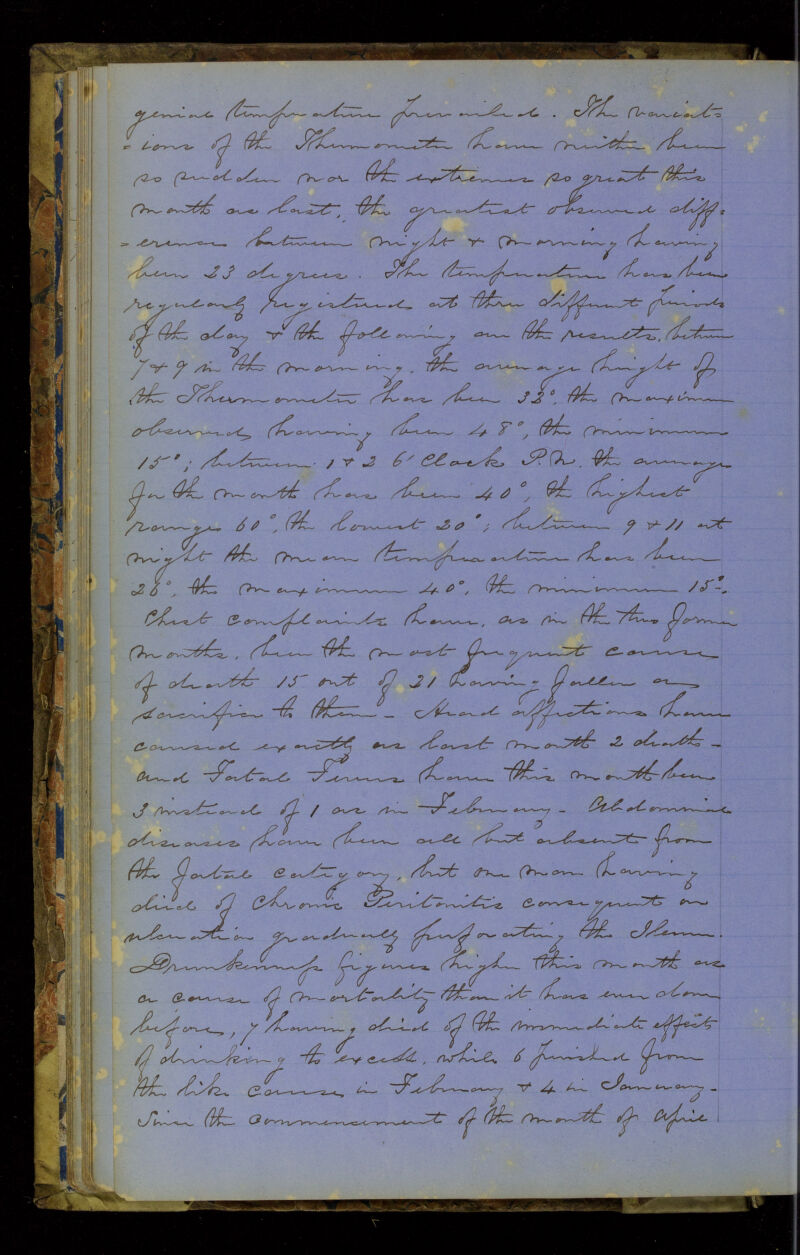 genial temperature prevailed. The variat=
=ions of the Thermometer have neither been
so sudden nor the extremes so great this
month as last, the greatest observed diff=
=erence between night & morning having
been 23 degrees. The temperature has been
regularly registered at three different periods
of the day & the following are the results, between
7 & 9 in the morning, the average height of
the Thermometer has been 33°, the maximum
observed having been 48°, the minimum
15°; between 1 & 2 O'Clock P.M. the average
for the month has been 40°, the highest
range 60°, the lowest 20°; between 9 & 11 at
night the mean temperature has been
26°, the maximum 40°, the minimum 15°.
Chest complaints have, as in the two former
months, been the most frequent cause
of death 15 out of 21 having fallen a
sacrifice to them - Head affections have
caused exactly as last month 2 deaths -
and Fatal Fevers have this month been
3 instead of 1 as in February - Abdominal
diseases have been all but absent from
the fatal category, but one man having
died of Chronic Peritonitis consequent on
ulceration gradually perforating the Ileum.
Drunkenness figures higher this month as
a cause of mortality than it has ever done
before, 7 having died of the immediate effects
of drinking to excess, while 6 perished from
the like cause in February & 4 in January -
Since the commensement of the month of April